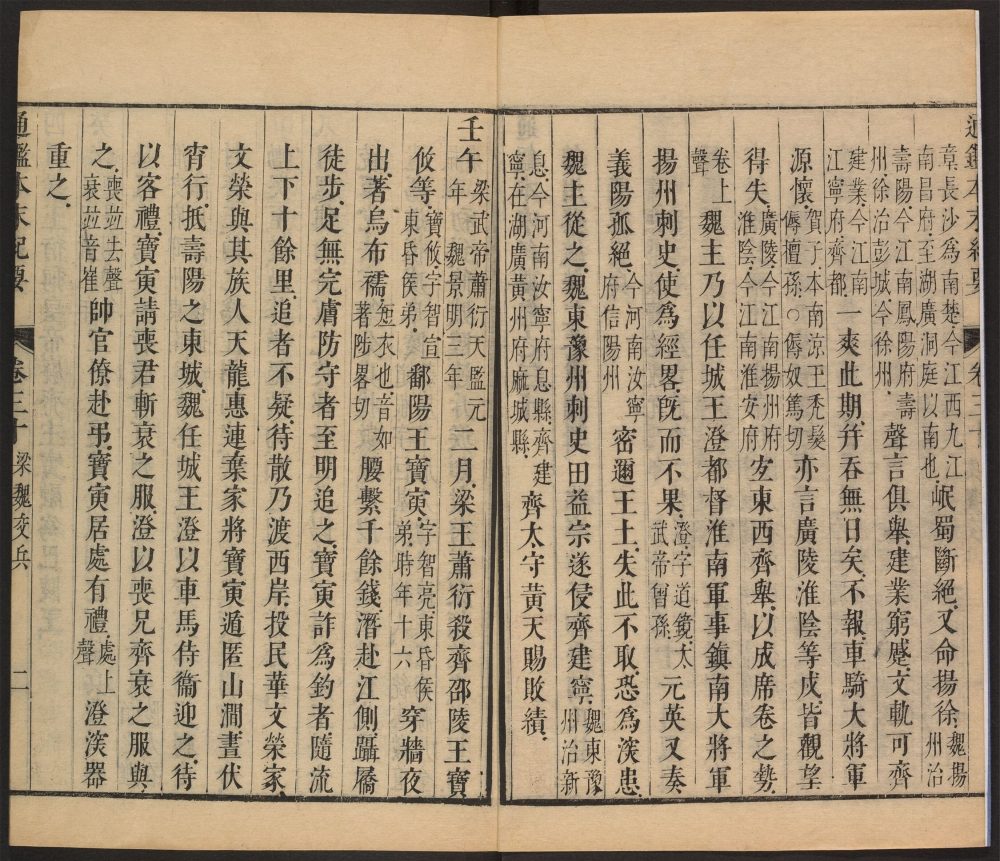 章長沙爲南楚今江西九江南昌府至湖廣洞庭以南也岷蜀斷絕又命揚徐魏揚州治
壽陽今江南鳳陽府壽州徐治彭城今徐州聲言俱舉建業窮蹙文軌可齊
建業今江南江寧府齊都一爽此期幷吞無日矣不報車騎大將軍
源懷賀子本南涼王禿髮傉檀孫○傉奴篤切亦言廣陵淮陰等戍皆觀望
得失廣陵今江南揚州府淮陰今江南淮安府宐東西齊舉以成席卷之勢
卷上聲魏主乃以任城王澄都督淮南軍事鎮南大將軍
揚州刺史使爲經畧旣而不果澄字道鏡太武帝曾孫元英又奏
義陽孤絕今河南汝寧府信陽州密邇王土失此不取恐爲深患
魏主從之魏東豫州刺史田益宗遂侵齊建寧魏東豫州治新
息今河南汝寧府息縣齊建寧在湖廣黃州府麻城縣齊太守黃天賜敗績
壬午梁武帝蕭衍天監元年魏景明三年二月梁王蕭衍殺齊邵陵王寶
攸等寶攸字智宣東昏侯弟鄱陽王寶寅字智亮東昏侯弟時年十六穿牆夜
出著烏布襦短衣也音如著陟畧切腰繫千餘錢潛赴江側躡屩
徒步足無完膚防守者至明追之寶寅詐爲釣者隨流
上下十餘里追者不疑待散乃渡西岸投民華文榮家
文榮與其族人天龍惠連棄家將寶寅遁匿山澗晝伏
宵行抵壽陽之東城魏任城王澄以車馬侍衞迎之待
以客禮寶寅請喪君斬衰之服澄以喪兄齊衰之服與
之喪竝去聲衰竝音崔帥官僚赴弔寶寅居處有禮處上聲澄深器
重之
通鑑本末紀要 卷三十 梁魏交兵 二